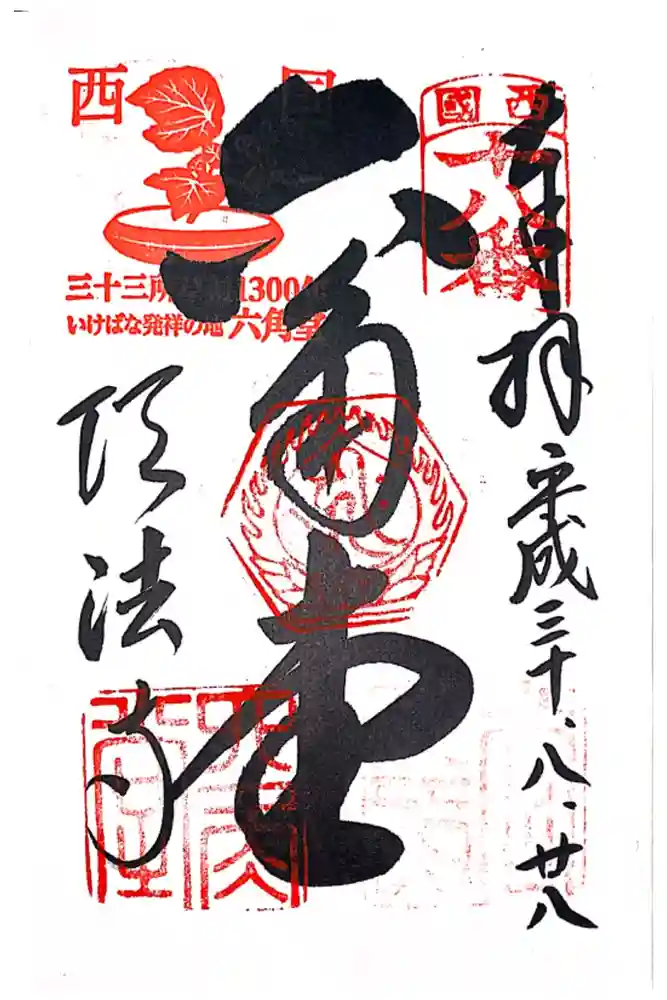 奉拝
平成三十、八、廿八
西國
十八番
六角堂
西国
三十三所草創1300年
いけばな発祥の地 六角堂
頂法寺